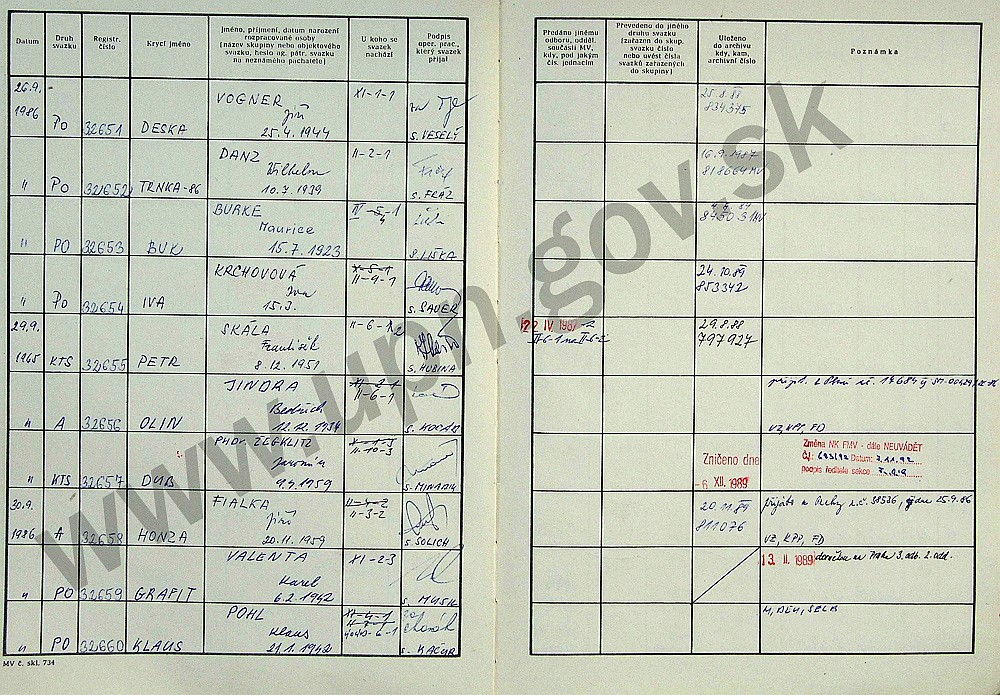 Datum
Druh svazku
Registr. číslo
Krycí jméno
Jméno, příjmení, datum narození
rozpracované osoby
(název skupiny nebo objektového
svazku, heslo ag. pátr. svazku
na neznámého pachatele)
U koho se
svazek
nachází
Podpis
oper. prac.,
který svazek
přijal
Předáno jinému
odboru, odděl.
součásti MV,
kdy, pod jakým
čís. jednacím
Převedeno do jiného
druhu svazku
(zařazen do skup.
svazku číslo
nebo uvést čísla
svazků zařazených
do skupiny)
Uloženo
do archivu
kdy, kam,
archivní číslo
Poznámka
26.9. VOGNER XI-1-1 25.8.88
1986 Jiří 834375
PO 32651 DESKA 25.4.1944 s. VESELÝ
DANZ II-2-1 16.9.1987
Wilhelm 818664 MV
" PO 32652 TRNKA-86 10.7.1939 s. FRÁZ
BURKE
Maurice
" PO 32653 BUK 15.7.1923 s. LIŠKA
KRCHOVOVÁ X-5-1 24.10.89
Iva II-9-1 853342
" PO 32654 IVA 15.3. s. SAUER
29.9. SKÁLA II-6-12 IV. 1987 29.8.88
František II-6-1 na II-6-2 797927
1965 KTS 32655 PETR 8.12.1951 s. HUBINA
JINDRA XI-2-1
Bedřich II-6-1
" A 32656 OLIN 12.12.1934 VZ, KPP, FD
PhDr. ZEGKLITZ Zničeno dne Změna NK FMV - dále NEUVÁDĚT
Jaromír II-10-3 Čj.: Datum: 2.11.92
" KTS 32657 DUB 9.4.1959 s. MINAŘIK - 6 XII. 1989 podpis ředitele sekce
30.9. FIALKA II-4-2 20.11.89
Jiří II-3-2 811076
1986 A 32658 HONZA 20.11.1959 s. SOLICH VZ, KPP, FD
VALENTA XI-2-3 13. II. 1989
Karel
" PO 32659 GRAFIT 6.2.1942 s. MUSIL
POHL XI-4-1
Klaus
" PO 32660 KLAUS 21.1.1942 s. KAČUR
MV č. skl. 734
www.upn.gov.sk